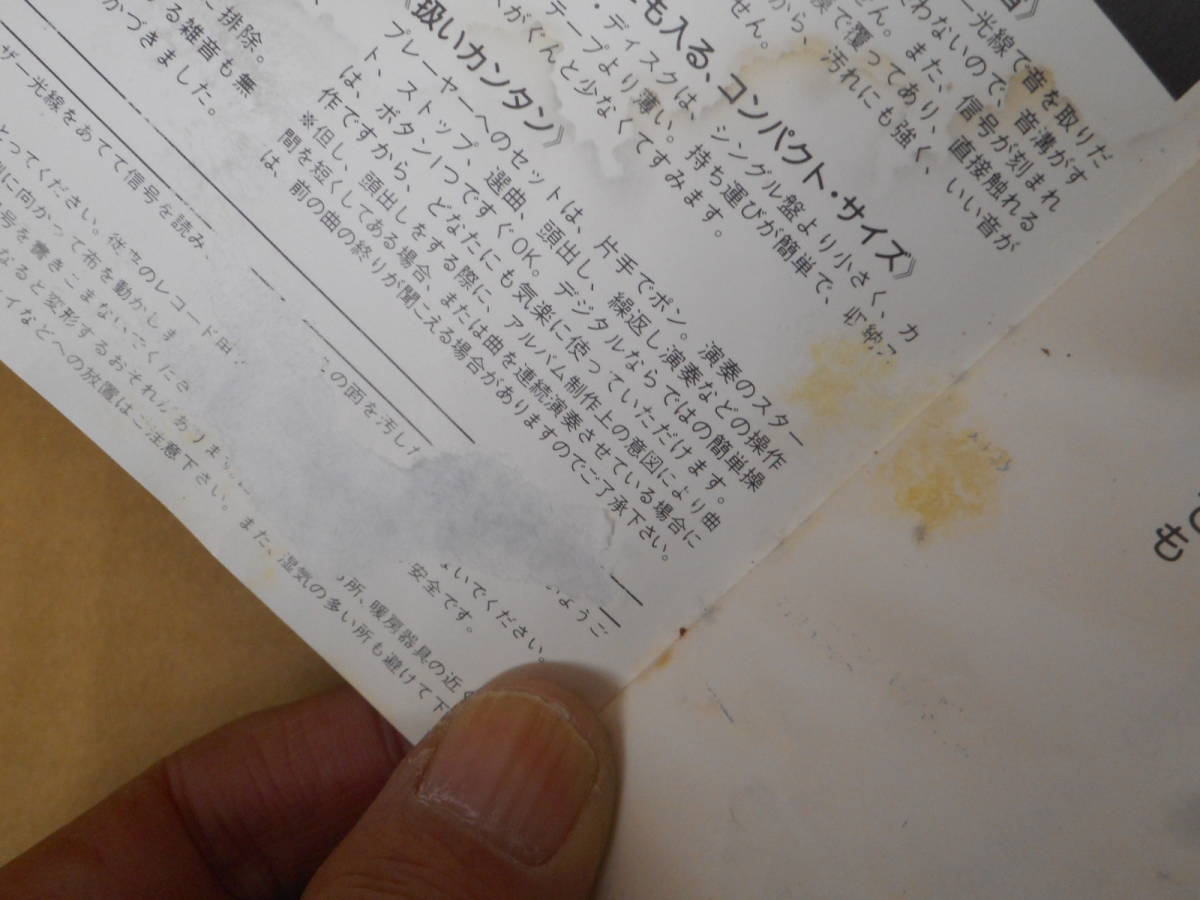 ー光線で音を取りだ
わないので、音溝がす
せん。また、信号が刻まれ
膜で覆ってあり、直接触れる
から、汚れにも強く、いい音が
せん。
も入る、コンパクト・サイズ》
・ディスクは、シングル盤より小さく、カ
テープより薄い。持ち運びが簡単で、収納ス
スがぐんと少なくてすみます。
扱いカンタン》
プレーヤーへのセットは、片手でポン。演奏のスター
ト、ストップ、選曲、頭出し、繰返し演奏などの操作
は、ボタン1つですぐOK。デジタルならではの簡単操
作ですから、どなたにも気楽に使っていただけます。
※但し、頭出しをする際に、アルバム制作上の意図により曲
間を短くしてある場合、または曲を連続演奏させている場合に
は、前の曲の終りが聞こえる場合がありますのでご了承下さい。
排除。
る雑音も無
かづきました。
ザー光線をあてて信号を読み、
の面を汚した
いように
とってください。従来のレコード
に向かって布を動かしま
いでください。
号を書きこまないでくださ
安全です。
なると変形するおそれがありま
所、暖房器具の近
イなどへの放置はご注意下さい。また、湿気の多い所も避けて下
も